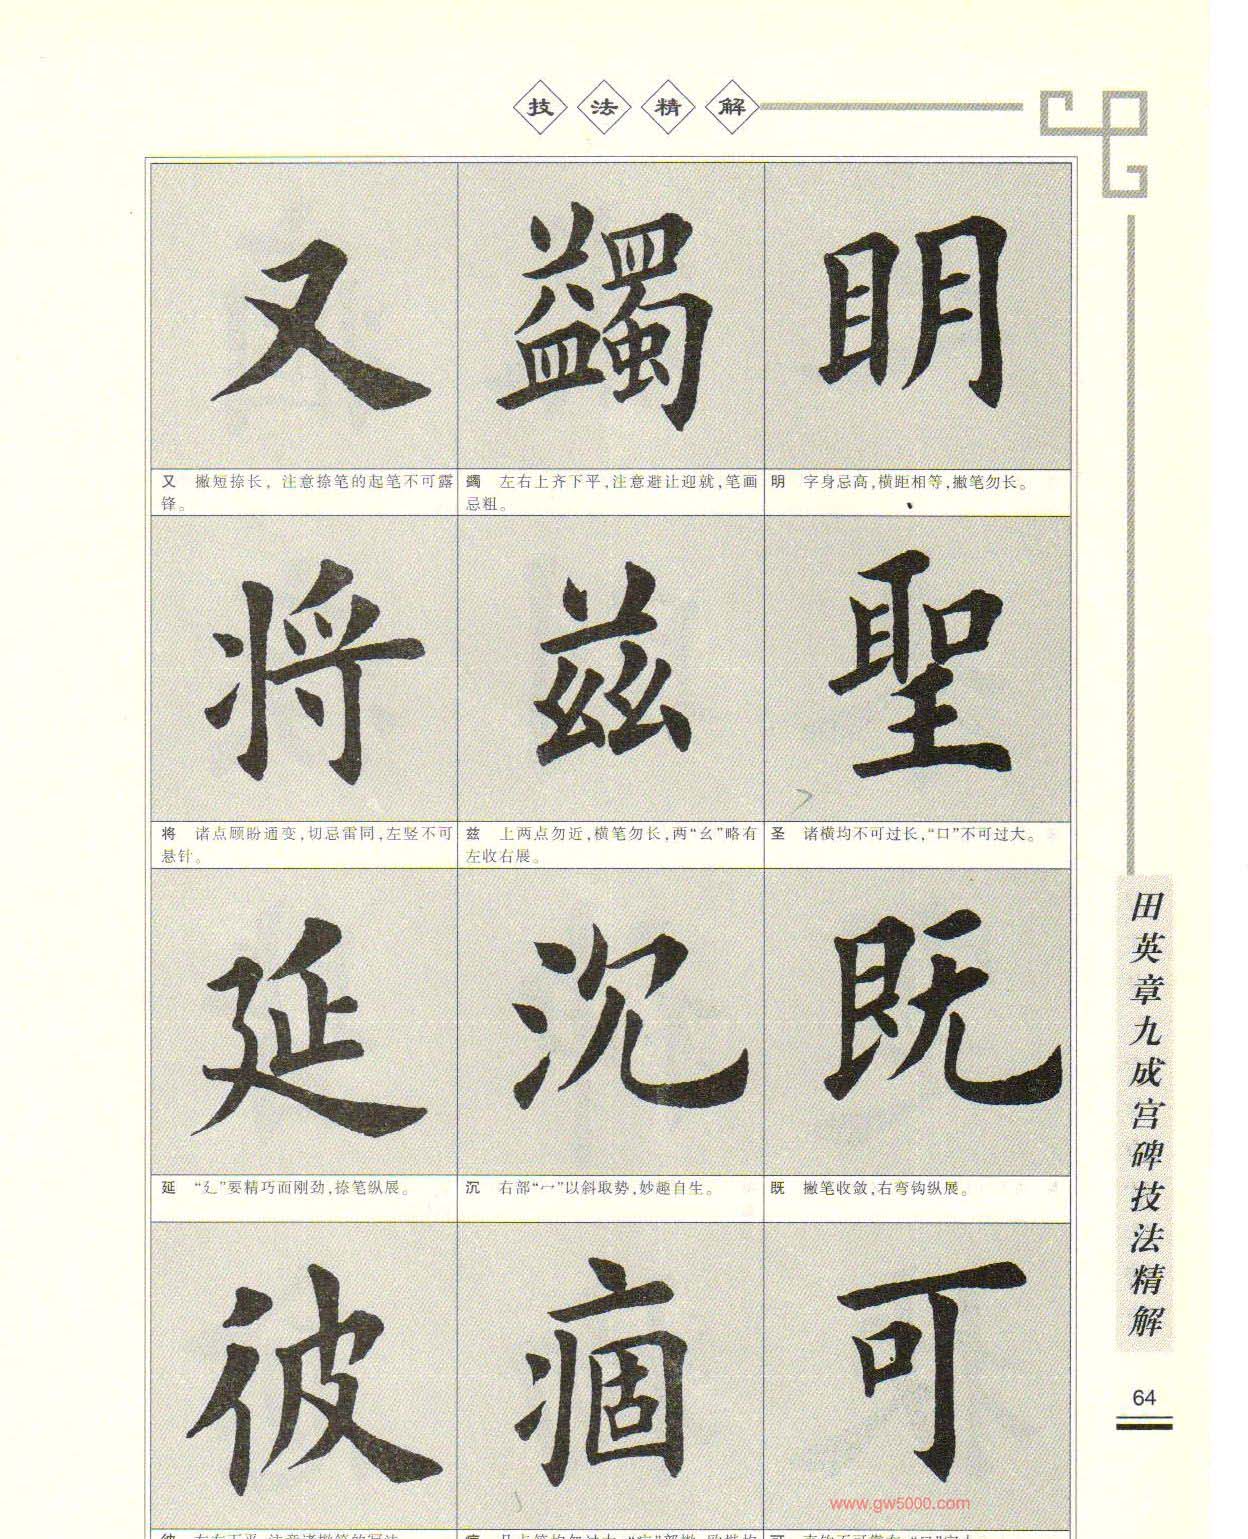 技法精解
又 蠲 明
又 撇短捺长，注意捺笔的起笔不可露
锋。
蠲 左右上齐下平，注意避让迎就，笔画
忌粗。
明 字身忌高，横距相等，撇笔勿长。
将 兹 聖
将 诸点顾盼通变，切忌雷同，左竖不可
悬针。
兹 上两点勿近，横笔勿长，两“幺”略有
左收右展。
圣 诸横均不可过长，“口”不可过大。
延 沉 既
延 “廴”要精巧而刚劲，捺笔纵展。
沉 右部“冖”以斜取势，妙趣自生。
既 撇笔收敛，右弯钩纵展。
彼 痼 可
田英章九成宫碑技法精解
64
www.gw5000.com